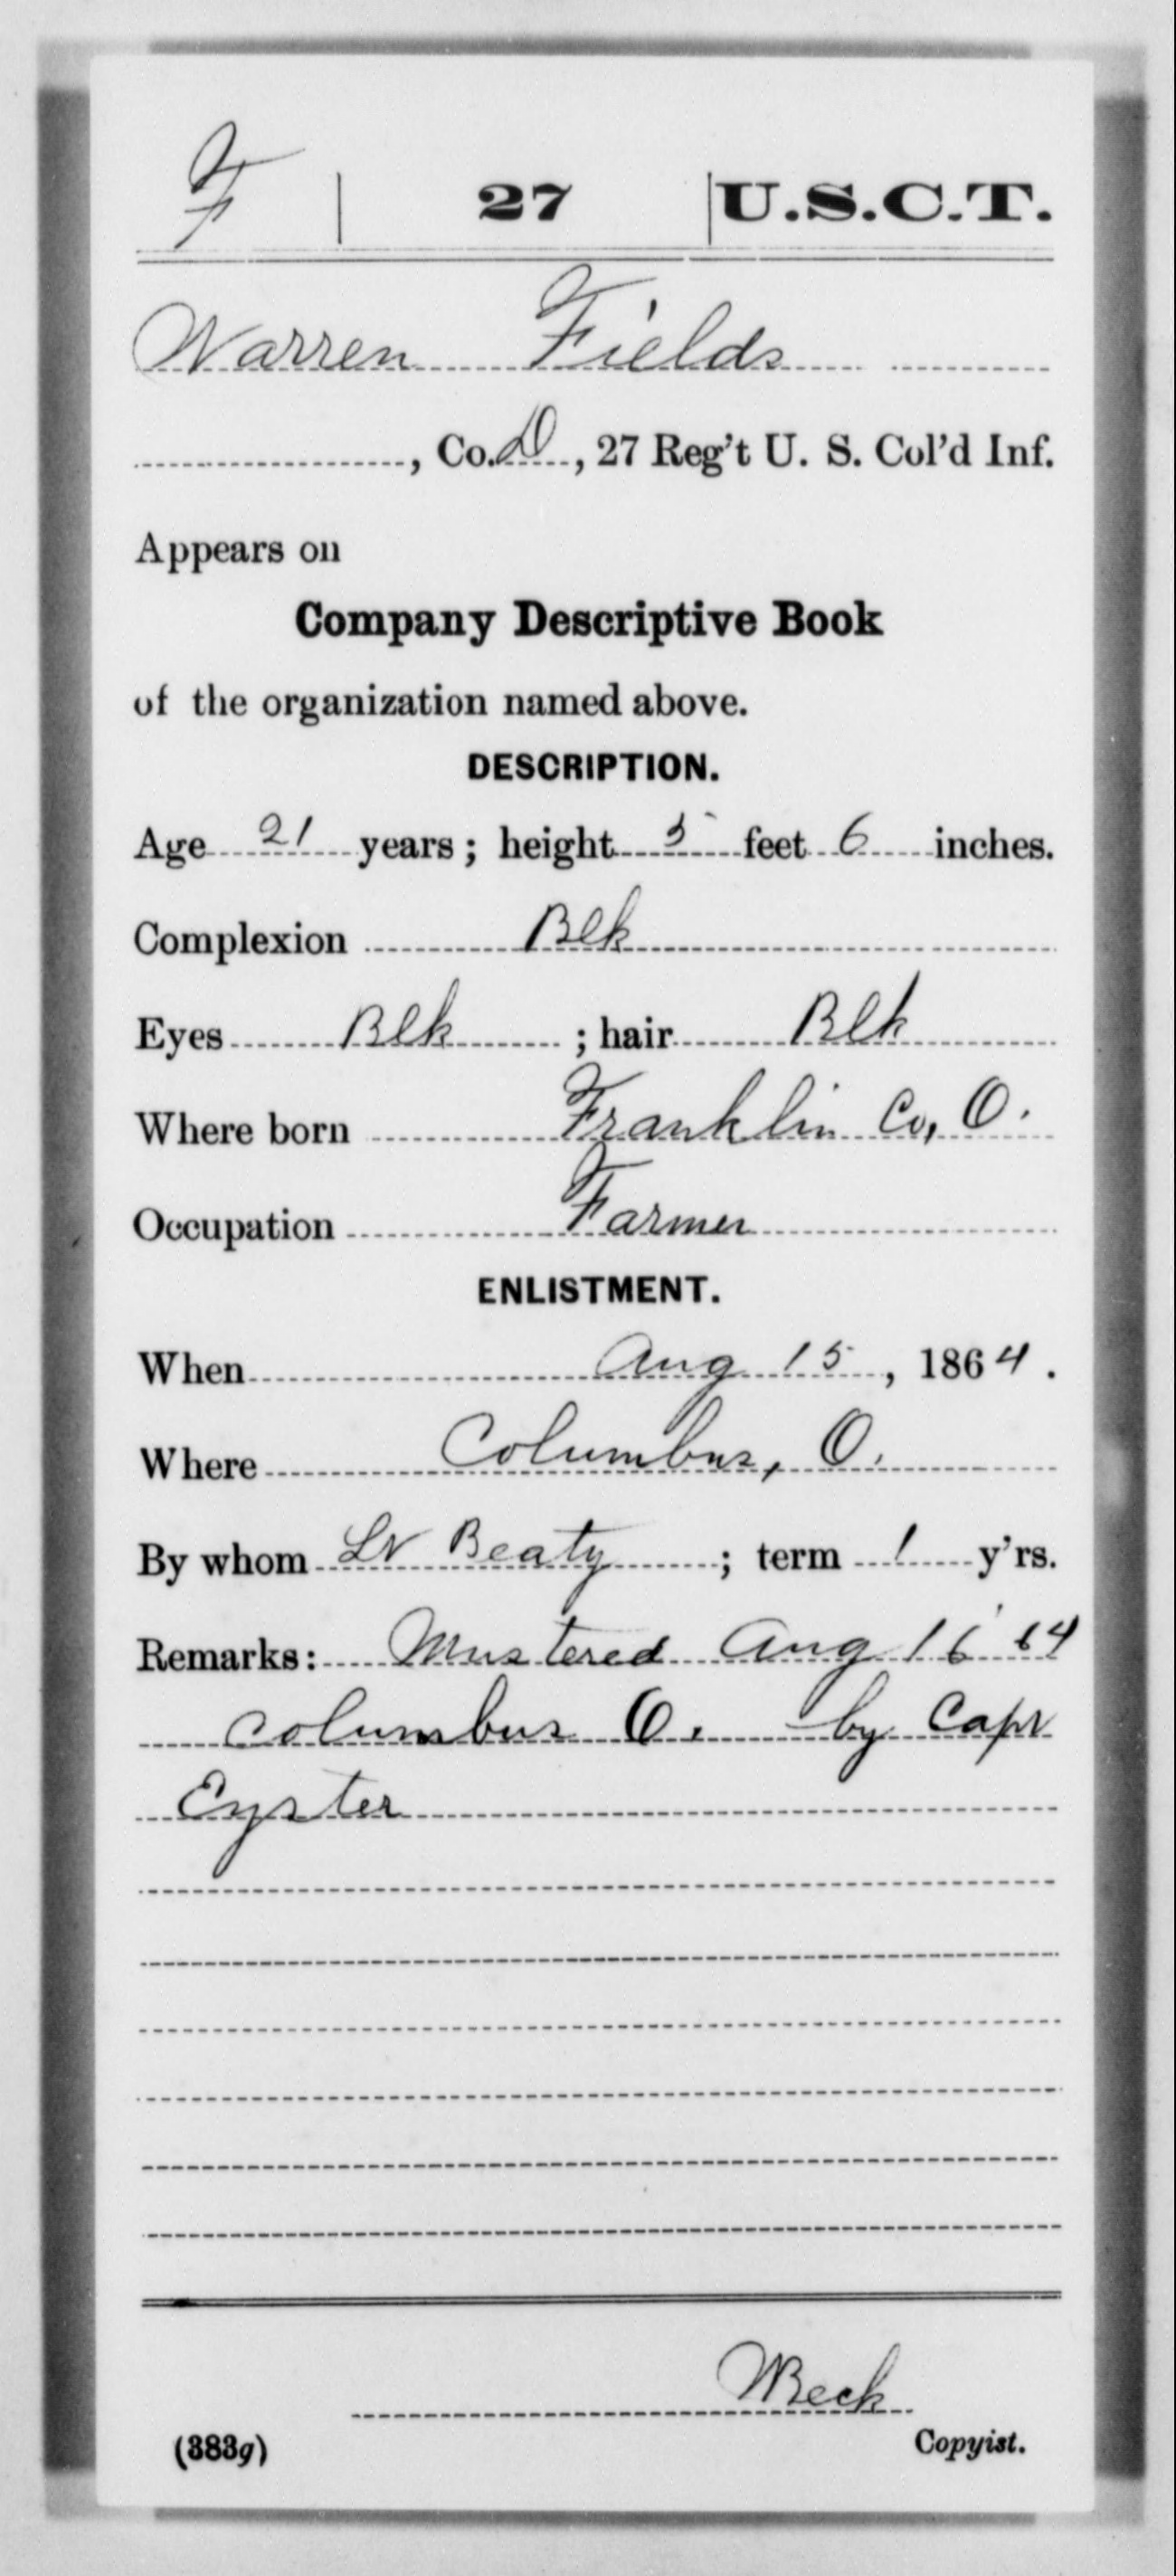 F 27 U.S.C.T.
Warren Fields
, Co. D, 27 Reg't U. S. Col'd Inf.
Appears on
Company Descriptive Book
of the organization named above.
DESCRIPTION.
Age 21 years; height 5 feet 6 inches.
Complexion Blk
Eyes Blk; hair Blk
Where born Franklin Co, O.
Occupation Farmer
ENLISTMENT.
When Aug 15, 1864.
Where Columbus, O.
By whom Lt Beaty; term 1 y'rs.
Remarks: Mustered Aug 16 64
Columbus O. by Capt
Eyster
WBeck
(383g) Copyist.